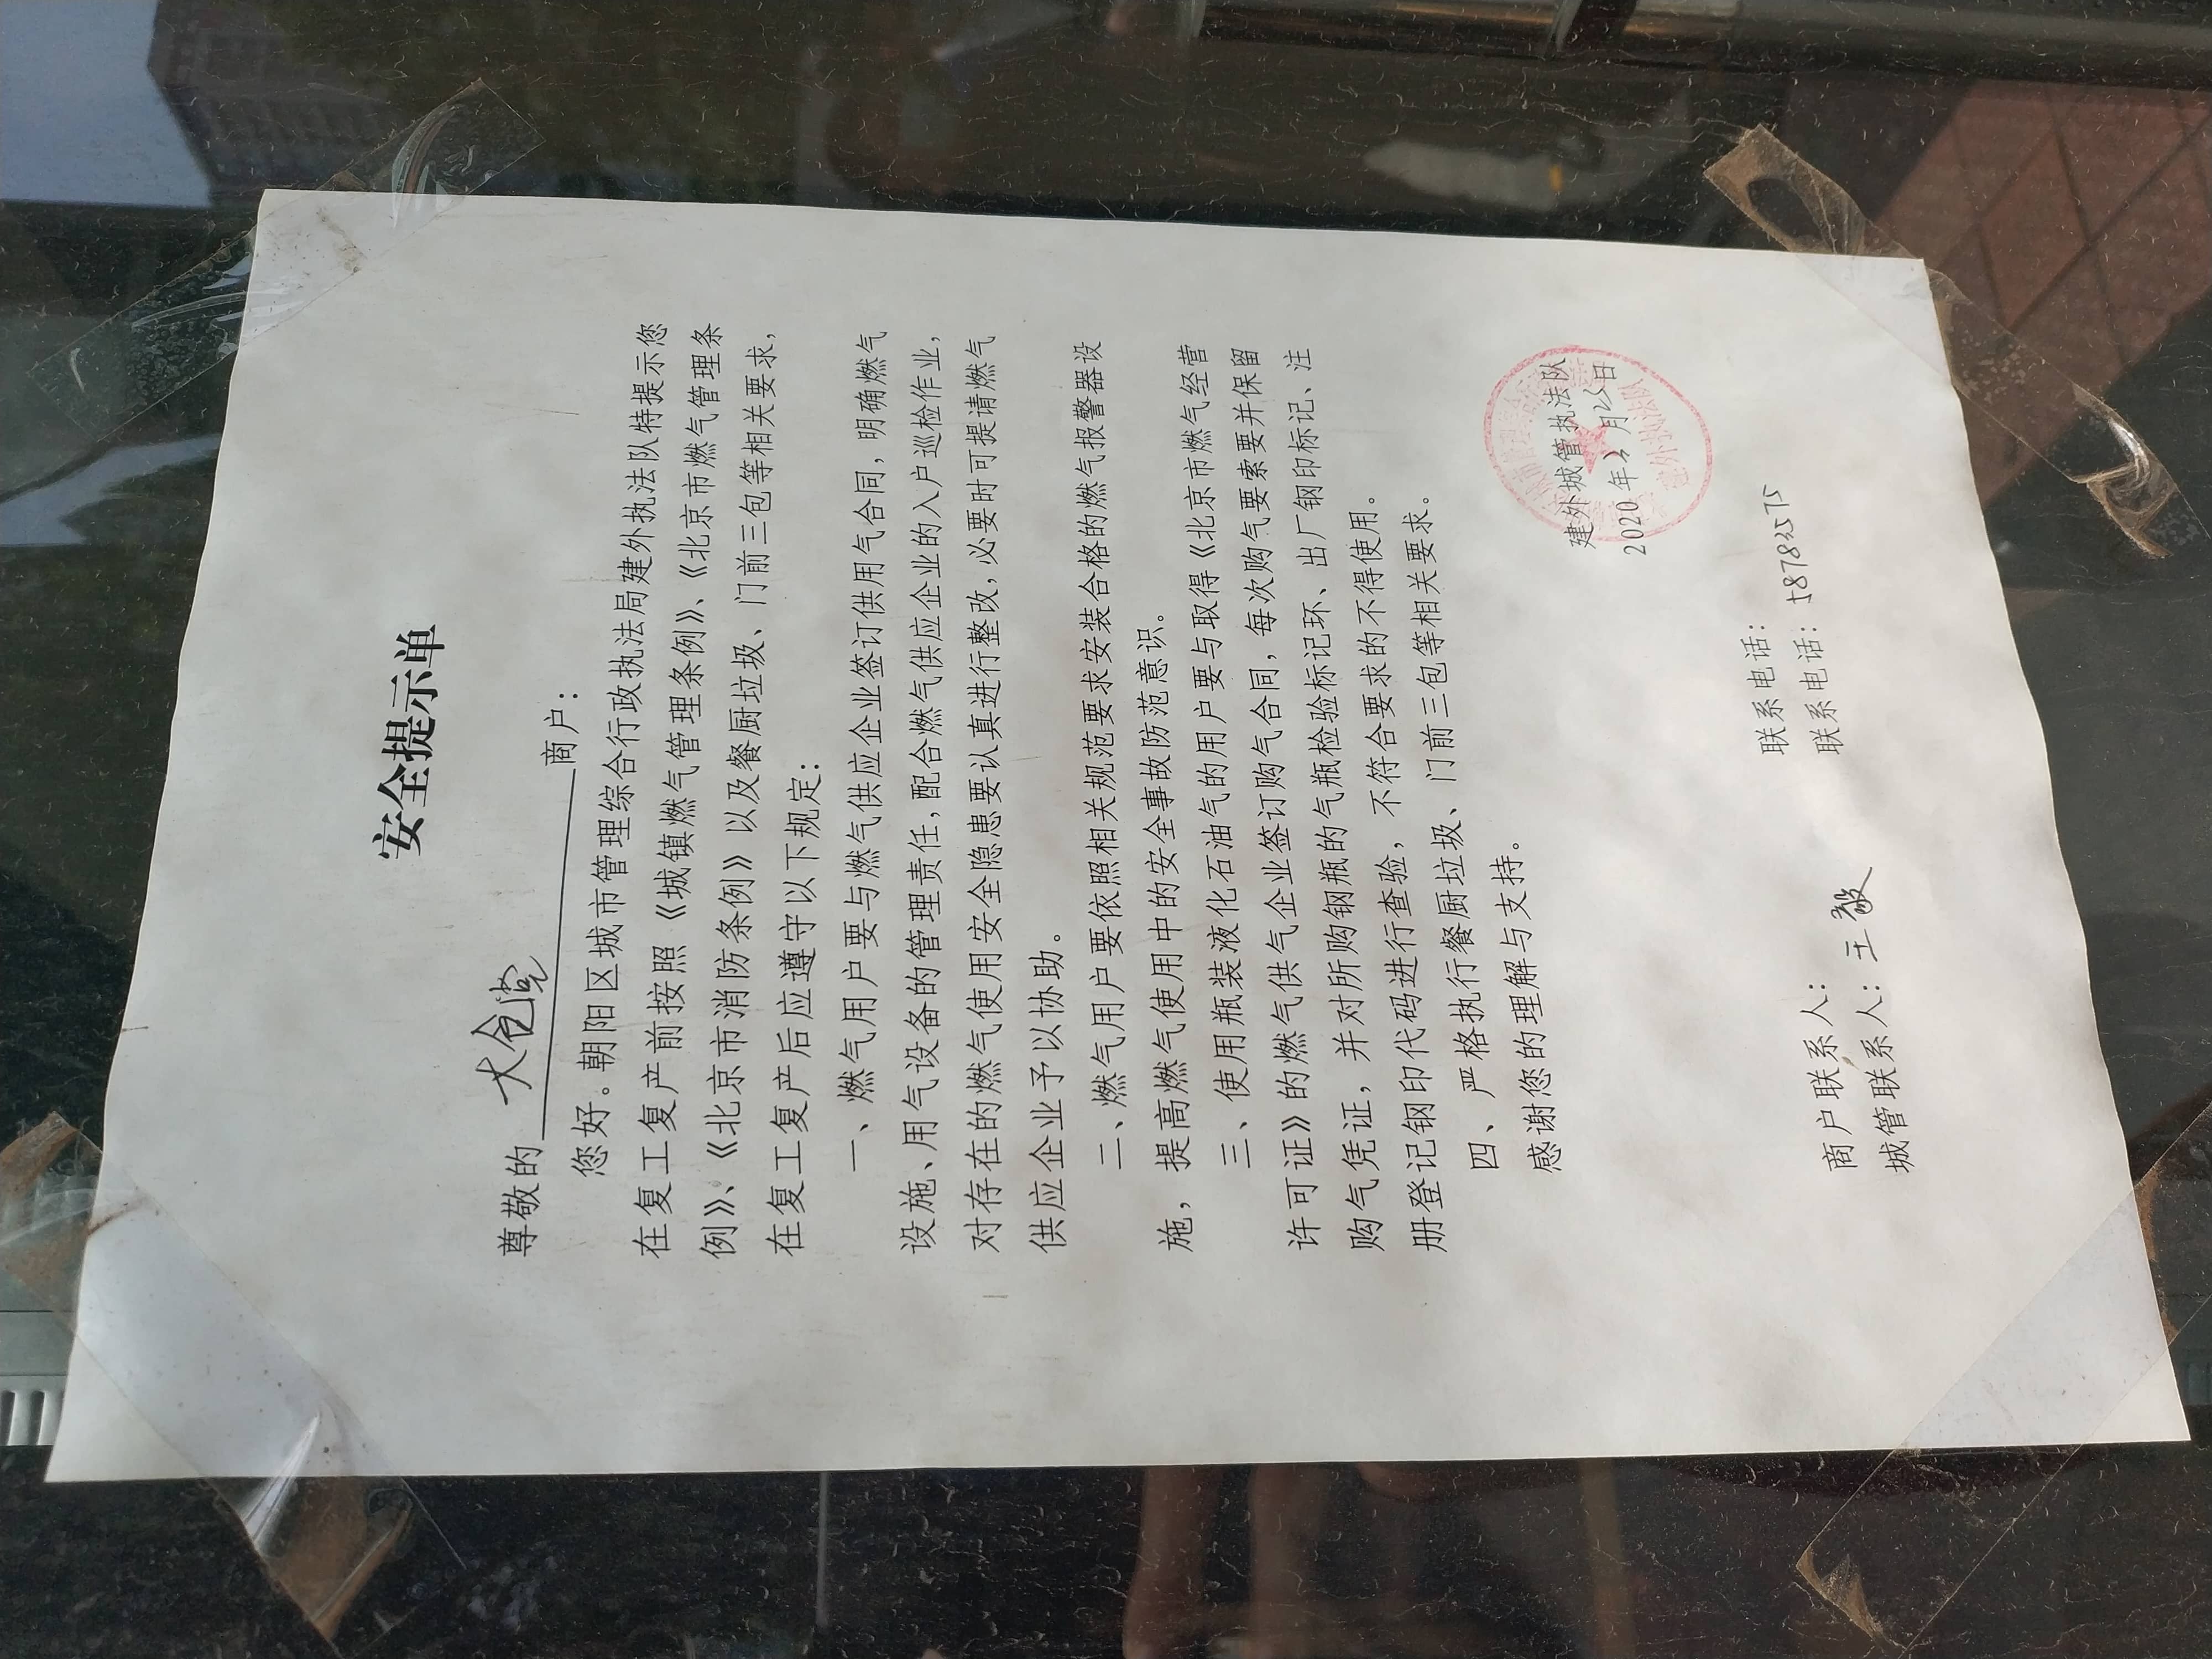 安全提示单
尊敬的 大仓堂 商户：
您好。朝阳区城市管理综合行政执法局建外执法队特提示您
在复工复产前按照《城镇燃气管理条例》、《北京市燃气管理条
例》、《北京市消防条例》以及餐厨垃圾、门前三包等相关要求，
在复工复产后应遵守以下规定：
一、燃气用户要与燃气供应企业签订供用气合同，明确燃气
设施、用气设备的管理责任，配合燃气供应企业的入户巡检作业，
对存在的燃气使用安全隐患要认真进行整改，必要时可提请燃气
供应企业予以协助。
二、燃气用户要依照相关规范要求安装合格的燃气报警器设
施，提高燃气使用中的安全事故防范意识。
三、使用瓶装液化石油气的用户要与取得《北京市燃气经营
许可证》的燃气供气企业签订购气合同，每次购气要索要并保留
购气凭证，并对所购钢瓶的气瓶检验标记环、出厂钢印标记、注
册登记钢印代码进行查验，不符合要求的不得使用。
四、严格执行餐厨垃圾、门前三包等相关要求。
感谢您的理解与支持。
建外城管执法队
2020年3月25日
建外执法队
联系电话：
商户联系人：
联系电话：58783575
城管联系人：王毅